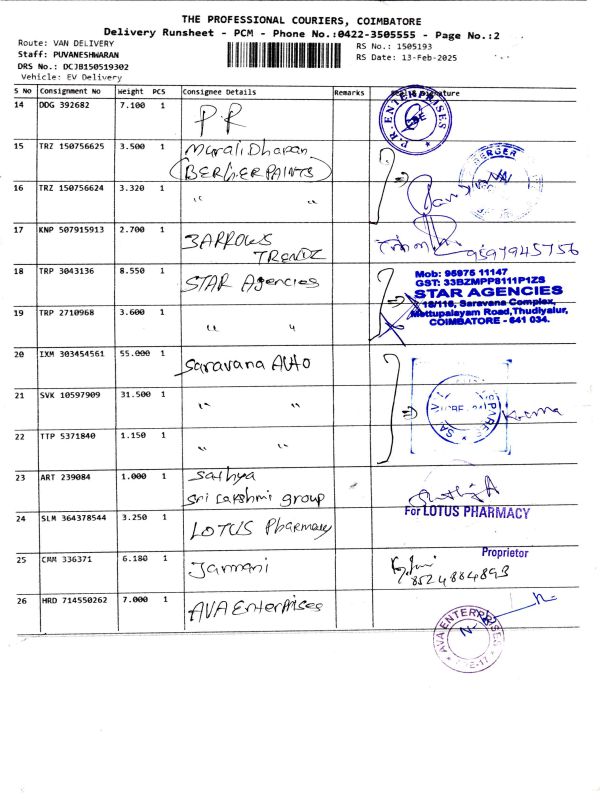 THE PROFESSIONAL COURIERS, COIMBATORE
Delivery Runsheet - PCM - Phone No.:0422-3505555 - Page No.:2
Route: VAN DELIVERY
Staff: PUVANESHWARAN
DRS No.: DCJB150519302
Vehicle: EV Delivery
RS No.: 1505193
RS Date: 13-Feb-2025
S No Consignment No Weight PCS Consignee Details Remarks
14 DDG 392682 7.100 1 P.R
P.R. ENTERPRISES
15 TRZ 150756625 3.500 1 Murali Dharan
BERGER PAINTS
BERGER
16 TRZ 150756624 3.320 1 " "
17 KNP 507915913 2.700 1 3ARROWS
TRENDZ
9597945756
18 TRP 3043136 8.550 1 STAR Agencies
Mob: 95975 11147
GST: 33BZMPP8111P1ZS
STAR AGENCIES
18/116, Saravana Complex,
Mettupalayam Road, Thudiyalur,
COIMBATORE - 641 034.
19 TRP 2710968 3.600 1 " "
20 IXM 303454561 55.000 1 Saravana AUto
21 SVK 10597909 31.500 1 " "
22 TTP 5371840 1.150 1 " "
23 ART 239084 1.000 1 Sathya
Sri Lakshmi group
24 SLM 364378544 3.250 1 LOTUS Pharmacy
For LOTUS PHARMACY
Proprietor
25 CMM 336371 6.180 1 Jarmani
8524884893
26 HRD 714550262 7.000 1 AVA Enterprises
AVA ENTERPRISES